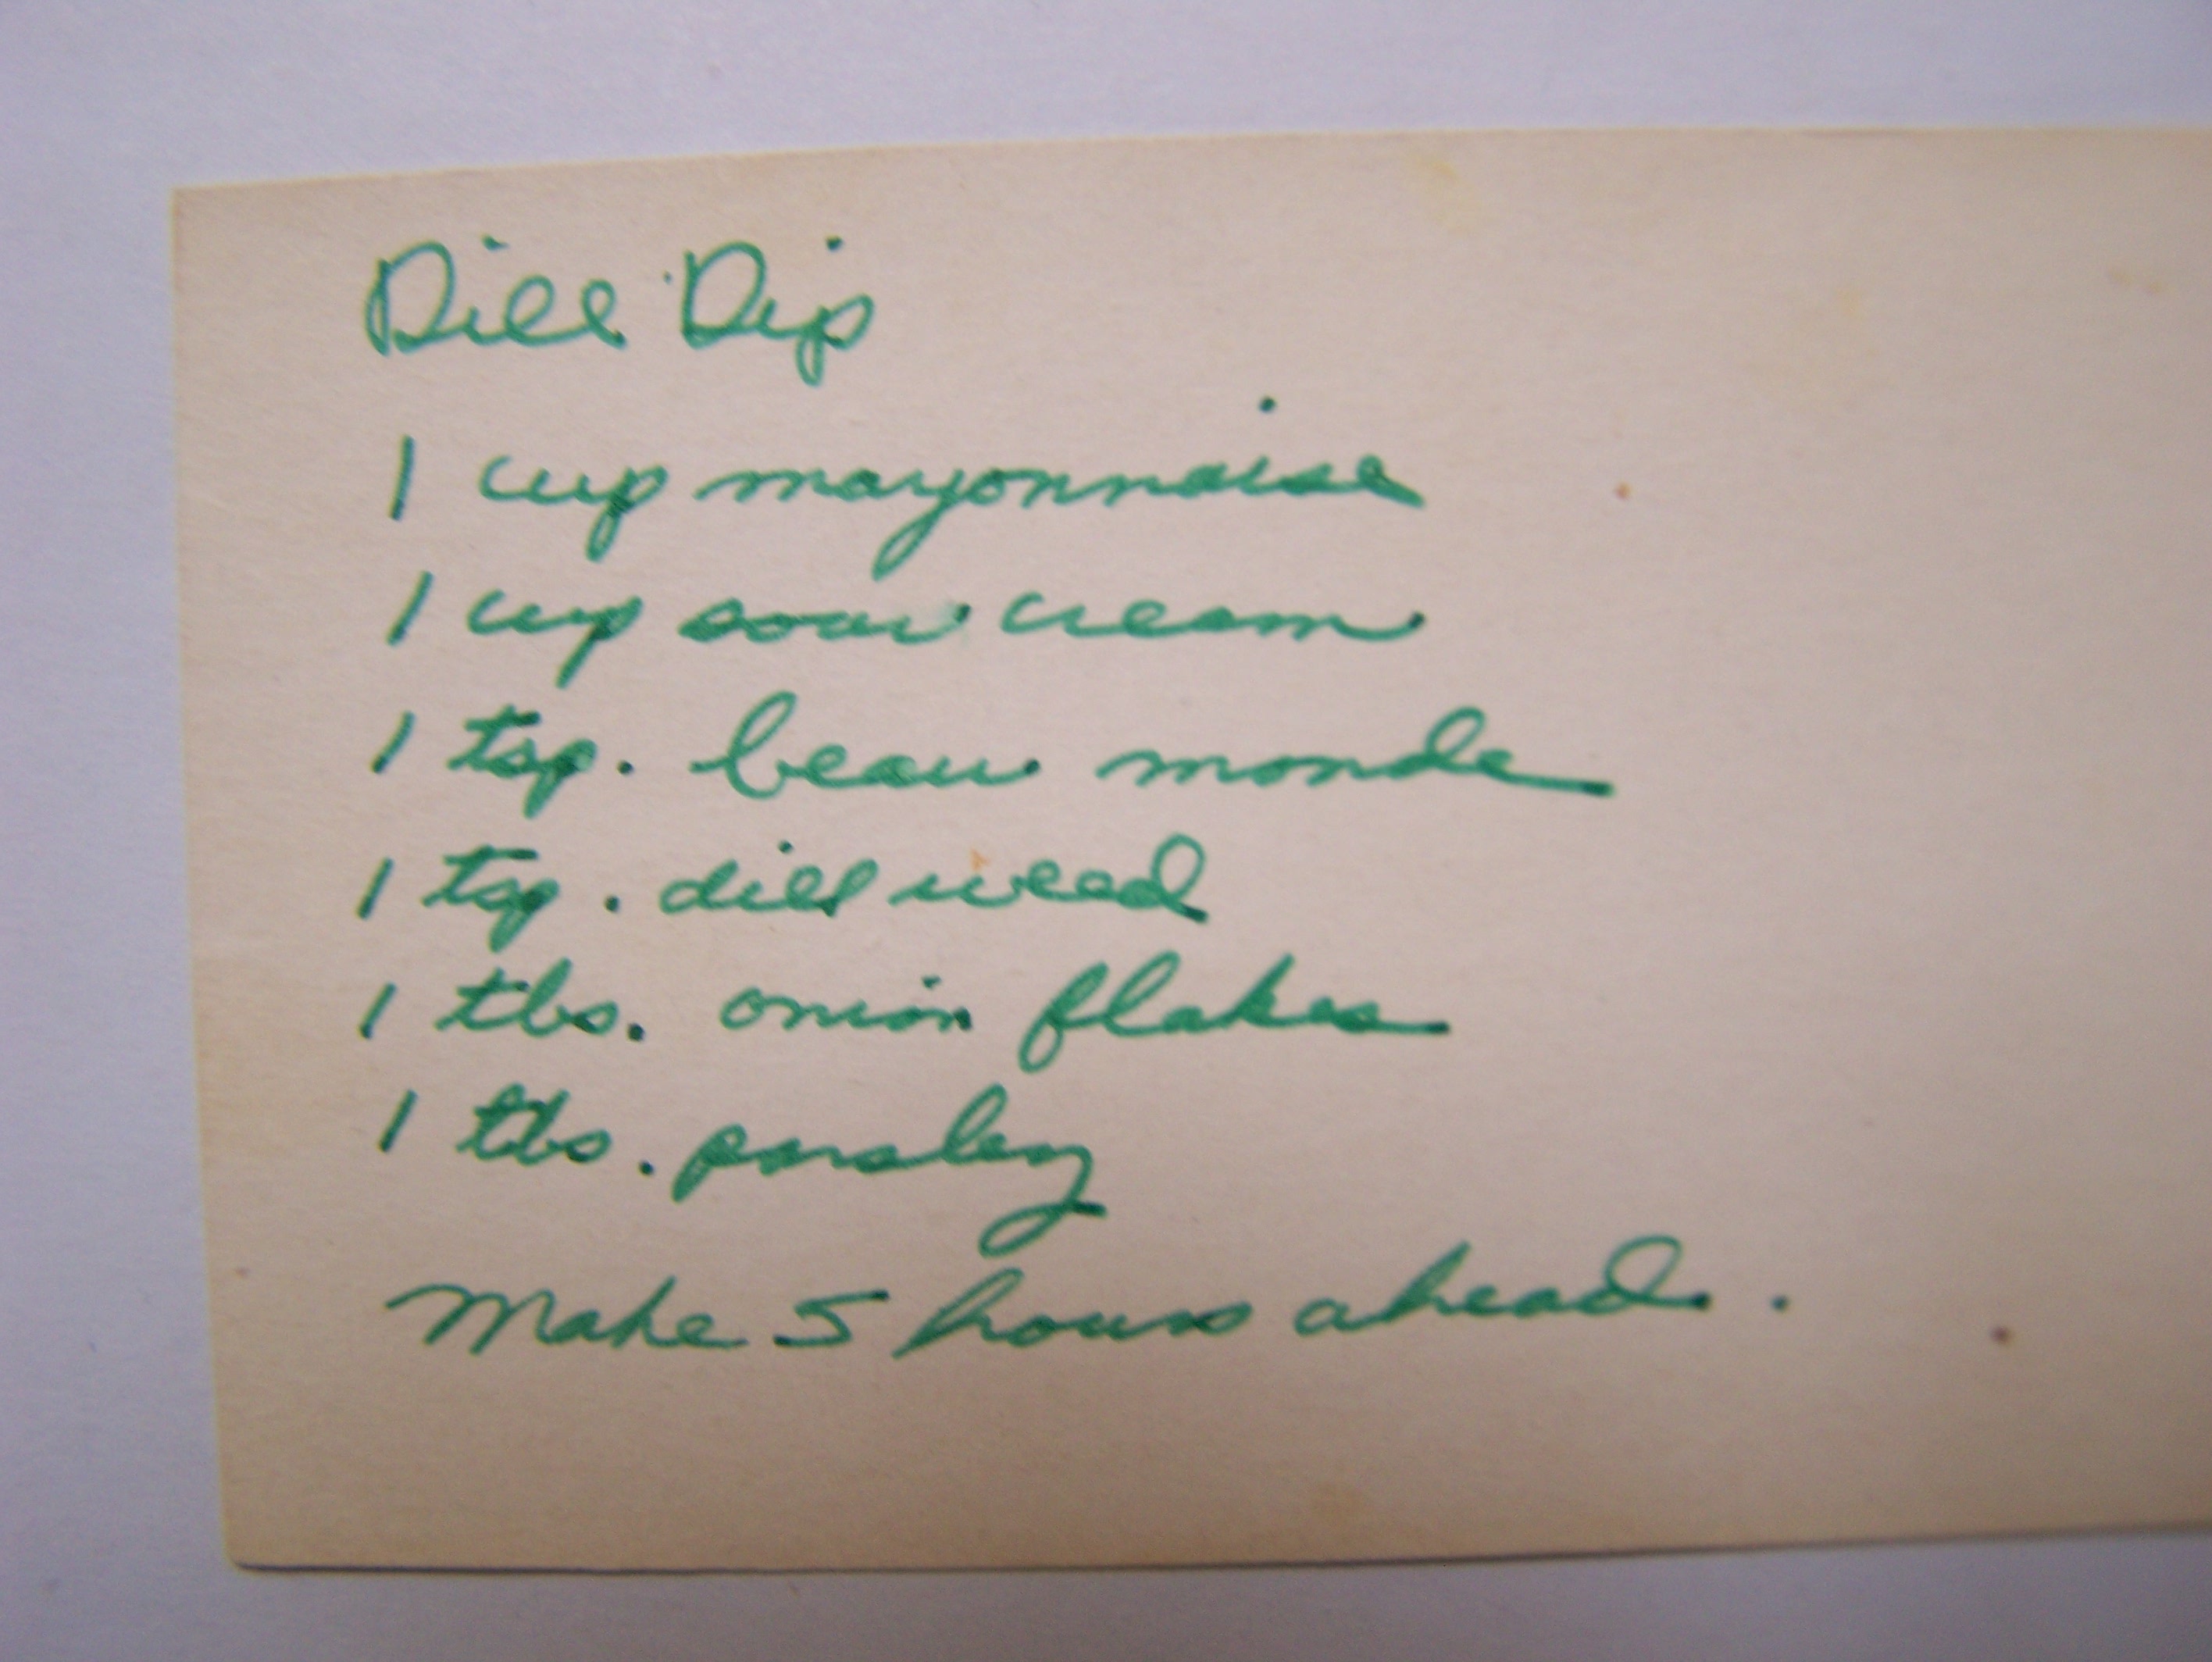 Dill Dip
1 cup mayonnaise
1 cup sour cream
1 tsp. beau monde
1 tsp. dill weed
1 tbs. onion flakes
1 tbs. parsley
Make 5 hours ahead.